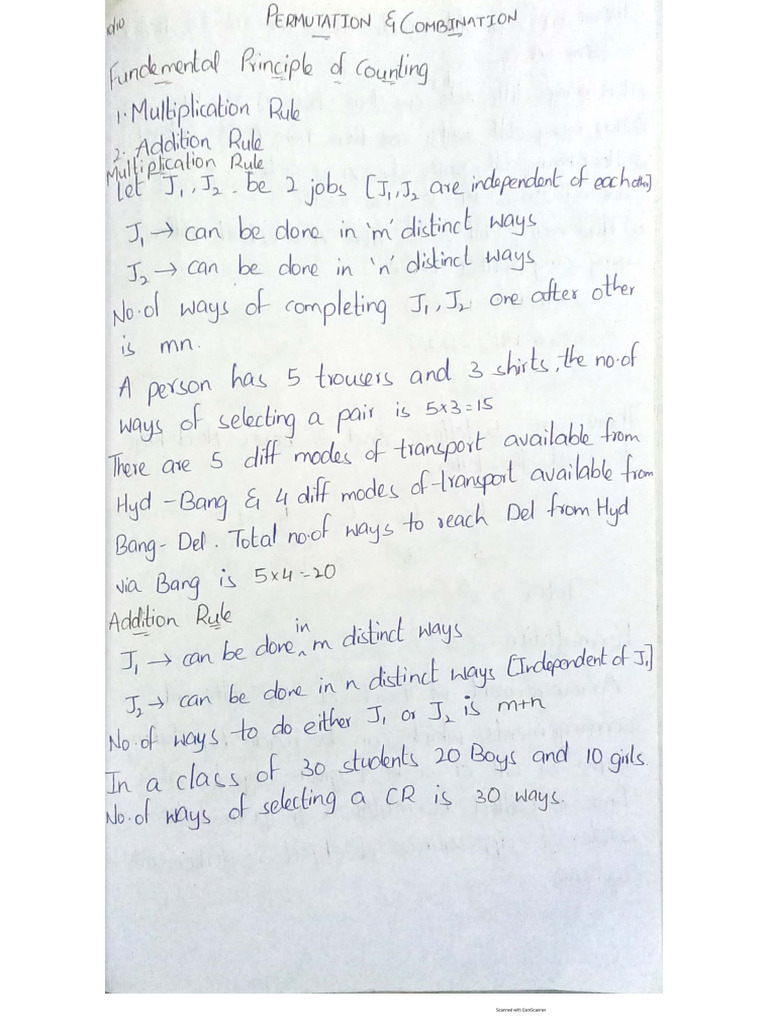 PERMUTATION & COMBINATION
Fundemental Principle of Counting
1. Multiplication Rule
2. Addition Rule
Multiplication Rule
Let J₁, J₂ be 2 jobs [J₁, J₂ are independent of each other]
J₁ → can be done in 'm' distinct ways
J₂ → can be done in 'n' distinct ways
No. of ways of completing J₁, J₂ one after other
is mn.
A person has 5 trousers and 3 shirts, the no. of
ways of selecting a pair is 5x3=15
There are 5 diff modes of transport available from
Hyd - Bang & 4 diff modes of transport available from
Bang- Del. Total no. of ways to reach Del from Hyd
via Bang is 5x4=20
Addition Rule
J₁ → can be done in m distinct ways
J₂ → can be done in n distinct ways [Independent of J₁]
No. of ways to do either J₁ or J₂ is m+n
In a class of 30 students 20 Boys and 10 girls.
No. of ways of selecting a CR is 30 ways.
Scanned with CamScanner